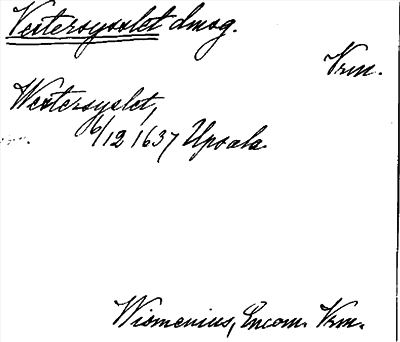 Vestersysslet dmsg.
Vrm.
Westersyslet,
6/12 1637 Upsala
Wismenius, Encom. Vrm.